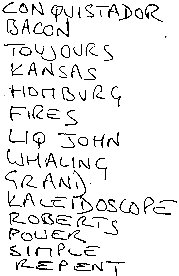 CONQUISTADOR
BACON
TOUJOURS
KANSAS
HOMBURG
FIRES
LIQ JOHN
WHALING
GRAND
KALEIDOSCOPE
ROBERTS
POWER
SIMPLE
REPENT